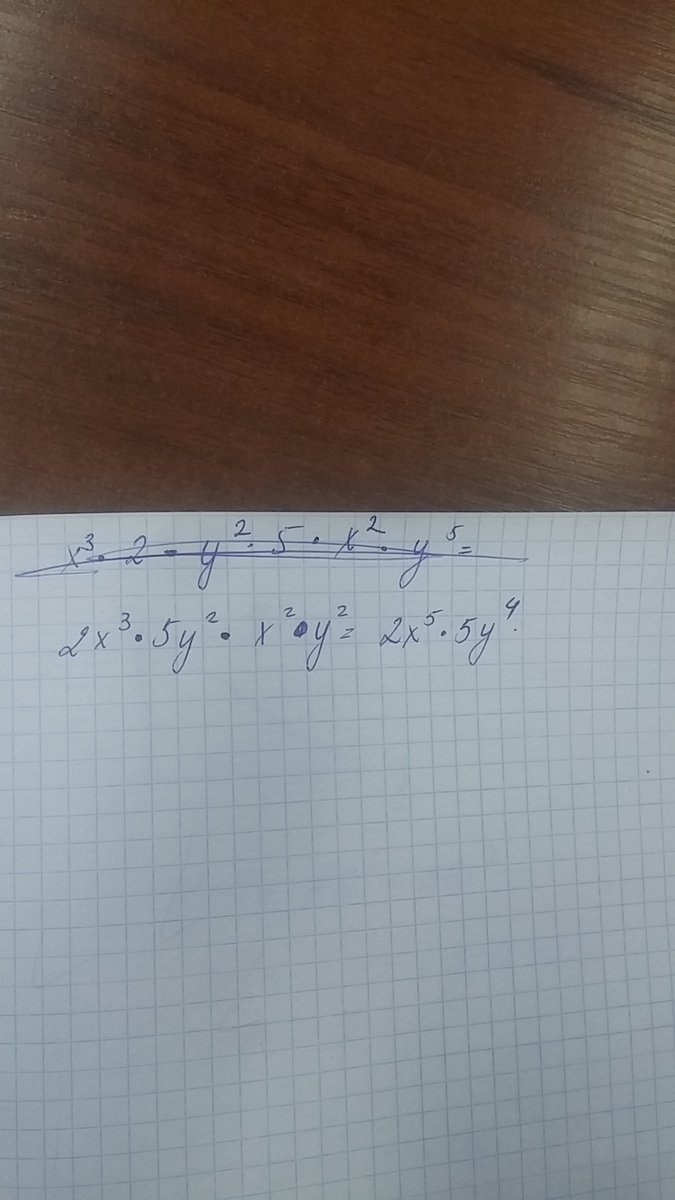 x³ · 2 · y² · 5 · x² · y⁵ =
2x³ · 5y² · x² · y² = 2x⁵ · 5y⁴.